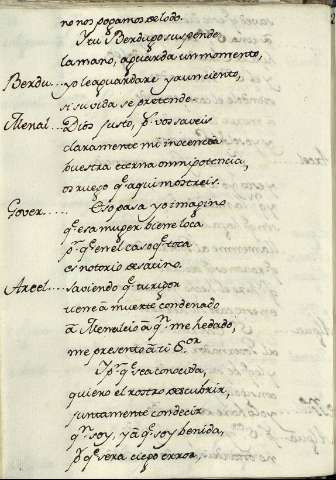 no nos pongamos de lodo.
Y tu Berdugo suspende
la mano, aguarda un momento,
Berdu... yo le aguardaré y aun ciento,
si su vida se pretende.
Menal... Dios justo, pº vos saveis
claramente mi inocencia
buestra eterna omnipotencia,
os ruego qº aqui mostreis.
Gover..... Eso pasa yo imagino
qº esa muger biene loca
pº qº en el caso qº toca
es notorio desatino.
Arcel.... saviendo qº tu rigor
tiene â muerte condenado
â Menalcio â qn me he dado,
me presento â ti Sor
Y pº qº sea conocida,
quiero el rostro descubrir,
juntamente con decir
qn soy, y â qº soy benida,
pº qº será ciego error,